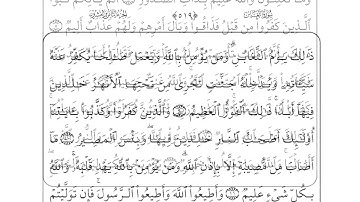 ٱلَّذِينَ كَفَرُوا۟ مِن قَبْلُ فَذَاقُوا۟ وَبَالَ أَمْرِهِمْ وَلَهُمْ عَذَابٌ أَلِيمٌ
ذَٰلِكَ يَوْمُ ٱلتَّغَابُنِ وَمَن يُؤْمِنۢ بِٱللَّهِ وَيَعْمَلْ صَٰلِحًا يُكَفِّرْ عَنْهُ
سَيِّـَٔاتِهِۦ وَيُدْخِلْهُ جَنَّٰتٍ تَجْرِى مِن تَحْتِهَا ٱلْأَنْهَٰرُ خَٰلِدِينَ
فِيهَآ أَبَدًا ذَٰلِكَ ٱلْفَوْزُ ٱلْعَظِيمُ ۝٩ وَٱلَّذِينَ كَفَرُوا۟ وَكَذَّبُوا۟ بِـَٔايَٰتِنَآ
أُو۟لَٰٓئِكَ أَصْحَٰبُ ٱلنَّارِ خَٰلِدِينَ فِيهَا وَبِئْسَ ٱلْمَصِيرُ ۝١٠ مَآ
أَصَابَ مِن مُّصِيبَةٍ إِلَّا بِإِذْنِ ٱللَّهِ وَمَن يُؤْمِنۢ بِٱللَّهِ يَهْدِ قَلْبَهُۥ وَٱللَّهُ
بِكُلِّ شَىْءٍ عَلِيمٌ ۝١١ وَأَطِيعُوا۟ ٱللَّهَ وَأَطِيعُوا۟ ٱلرَّسُولَ فَإِن تَوَلَّيْتُمْ